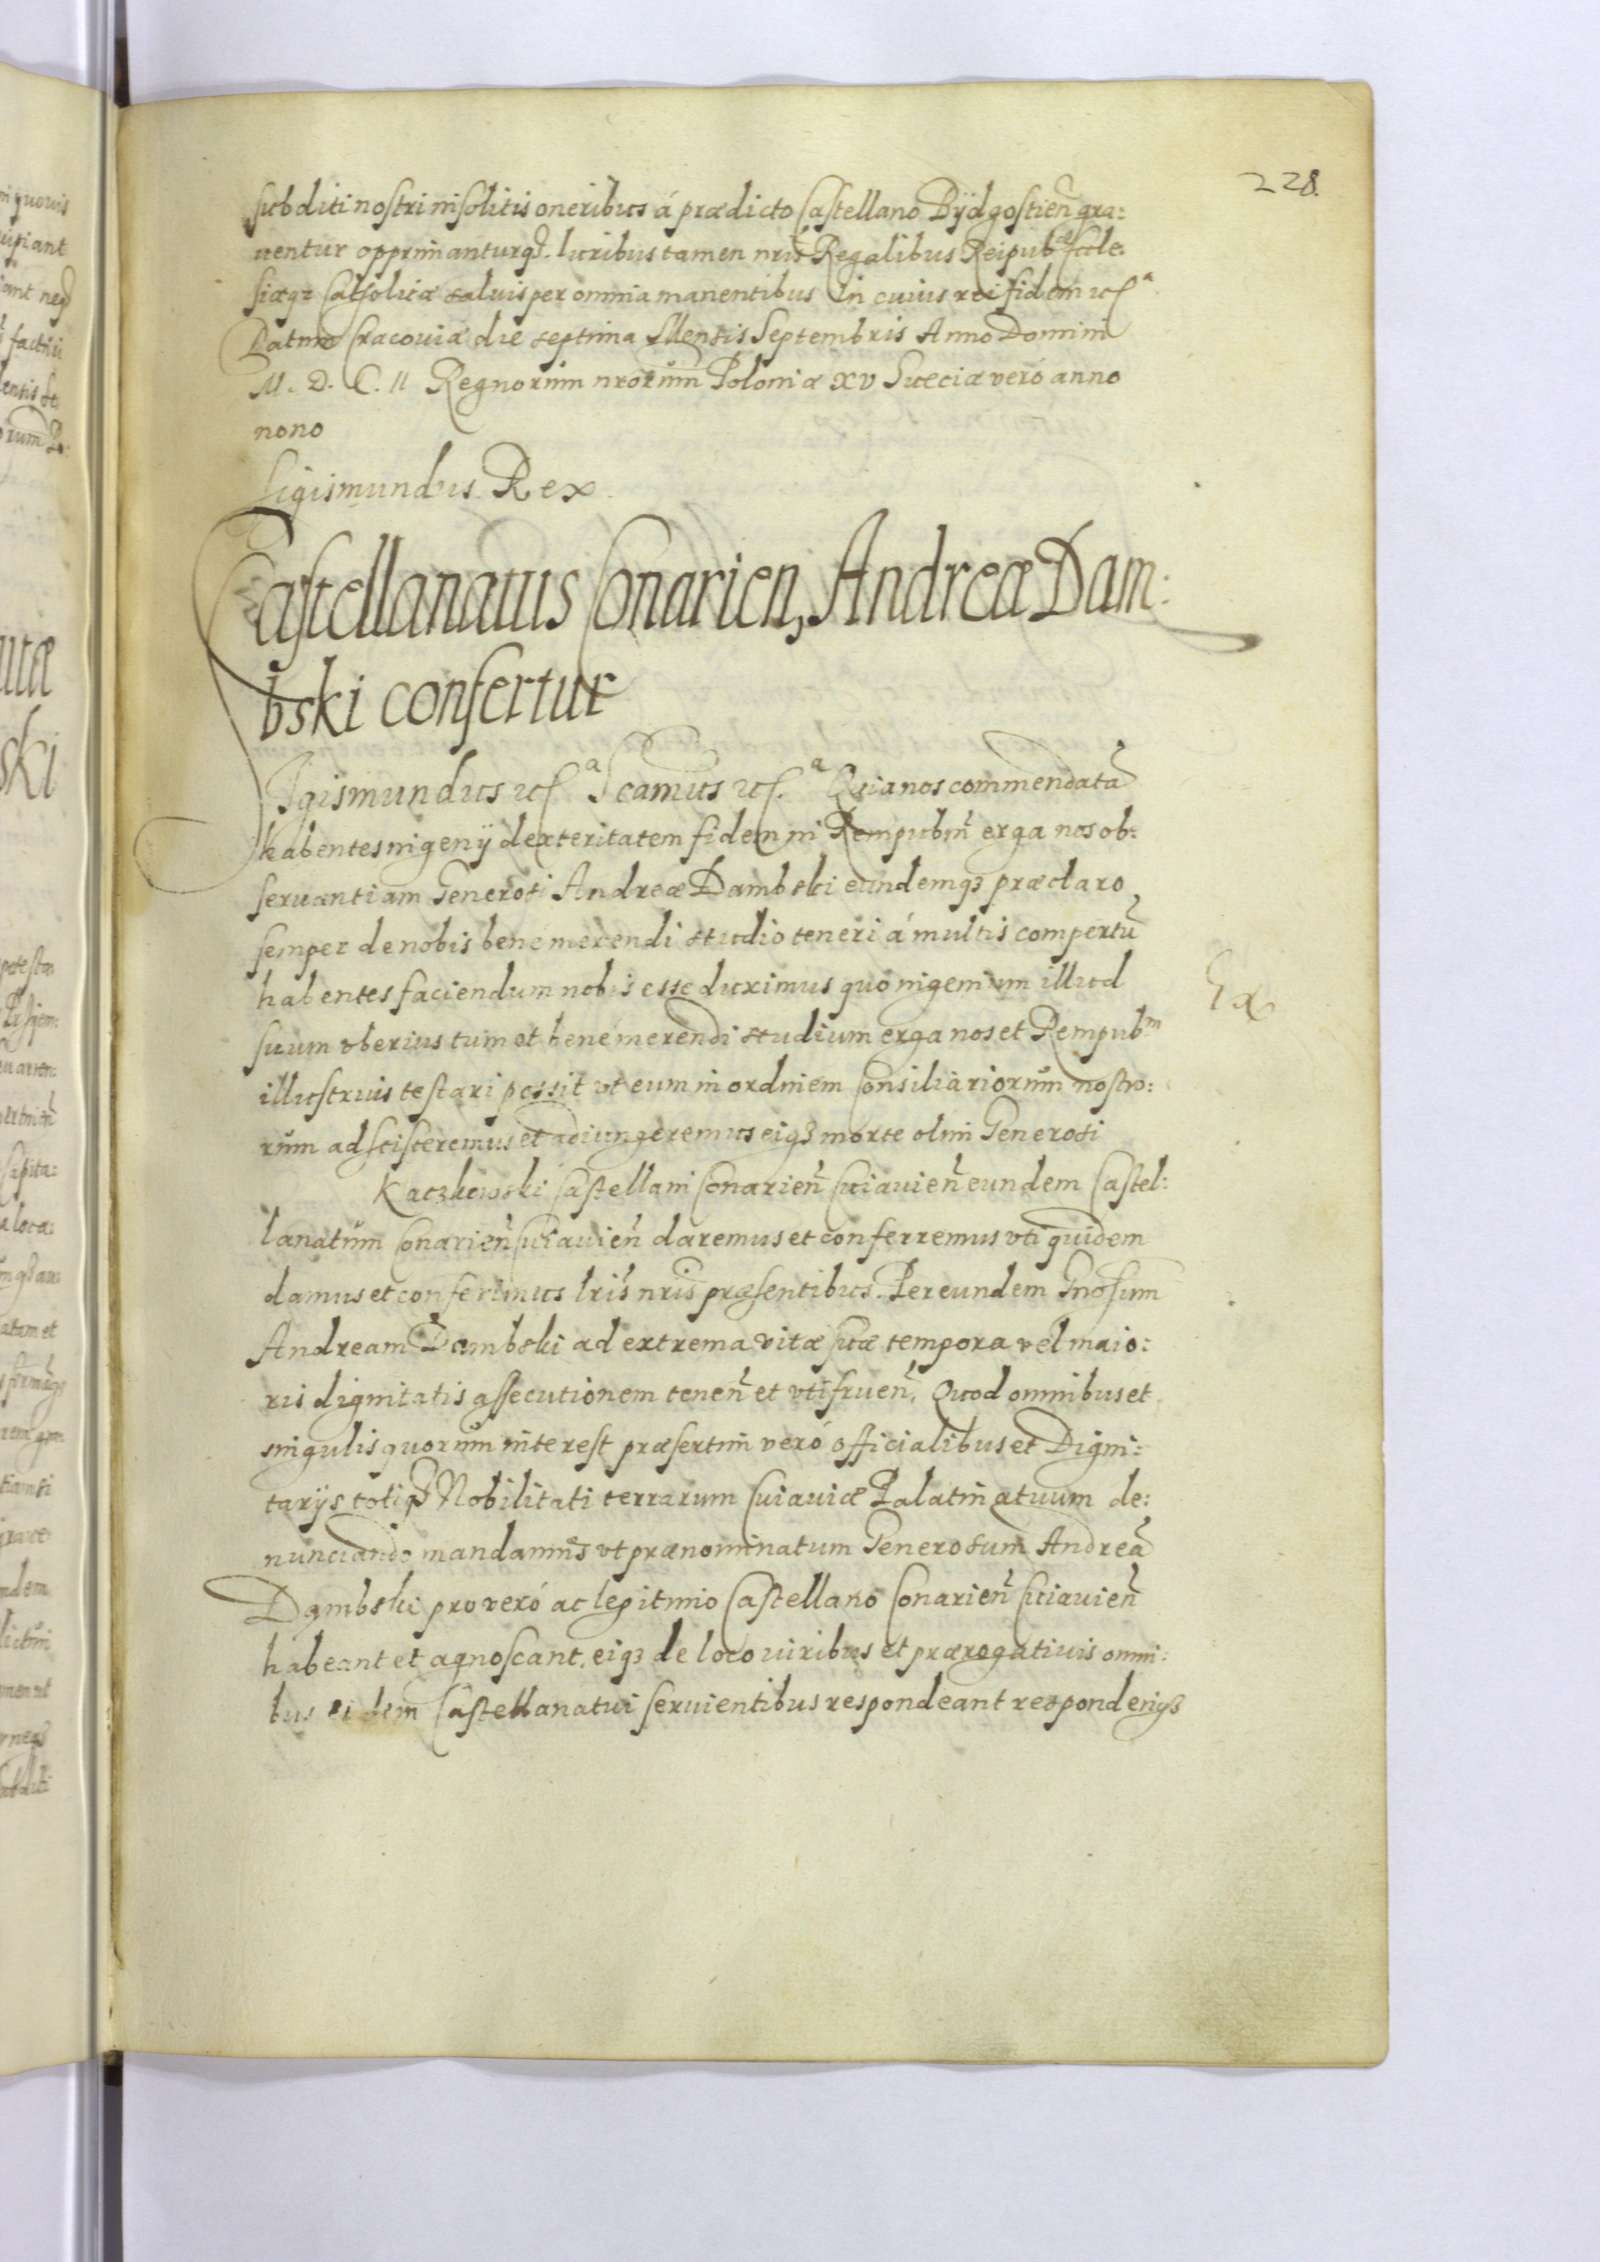 228.
subditi nostri insolitis oneribus á prædicto Castellano Bÿdgostien̄ gra:
uentur opprimanturq₃. Iuribus tamen nris Regalibus Reipubᶜᵃᵉ Eccle:
siæq₃ Catholicæ saluis per omnia manentibus In cuius rei fidem etcᵃ
Datum Cracouiæ die septima Mensis Septembris Anno Domini
M. D. C. II Regnorum nrorum Poloniæ XV Sueciæ veró anno
nono
Sigismundus Rex.
Castellanatus Conarien, Andreæ Dam:
bski confertur
Sigismundus etcᵃ Scamus etc.ᵃ Quia nos commendatā
habentes ingenÿ dexteritatem fidem in Rempubm̄ erga nos ob:
seruantiam Generosi Andreæ Dambski eundemq₃ præclaro
semper de nobis bene merendi studio teneri á multis compertū
habentes faciendum nobis esse duximus quó ingenium illud
suum vberius tum et bene merendi studium erga nos et Rempubᵐ
illustrius testari possit vt eum in ordinem Consiliariorum nostro:
rum adscisceremus et adiungeremus eiq₃ morte olim Generosi
Kaczkowski Castellani Conarien̄ Cuiauien̄ eundem Castel:
lanatum Conarien̄ Cuiauien̄ daremus et conferremus vti quidem
damus et conferimus lris nris præsentibus. Per eundem Gnosum
Andream Dambski ad extrema vitæ suæ tempora vel maio:
ris dignitatis assecutionem tenen̄ et vtifruen̄. Quod omnibus et
singulis quorum interest præsertim veró officialibus et Digni:
tarijs totiq₃ Nobilitati terrarum Cuiauiæ Palatinatuum de:
nunciando mandamus vt prænominatum Generosum Andreā
Dambski pro veró ac legitimo Castellano Conarien̄ Cuiauien̄
habeant et agnoscant, eiq₃ de loco iuribus et prærogatiuis omni:
bus eidem Castellanatui seruientibus respondeant responderiq₃
Ex